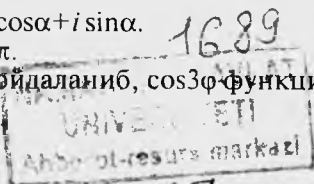 cosα+i sinα.
1689
π.
ойдаланиб, cos3φ функци
UNIVE ETI
Ahborot-resurs markazi